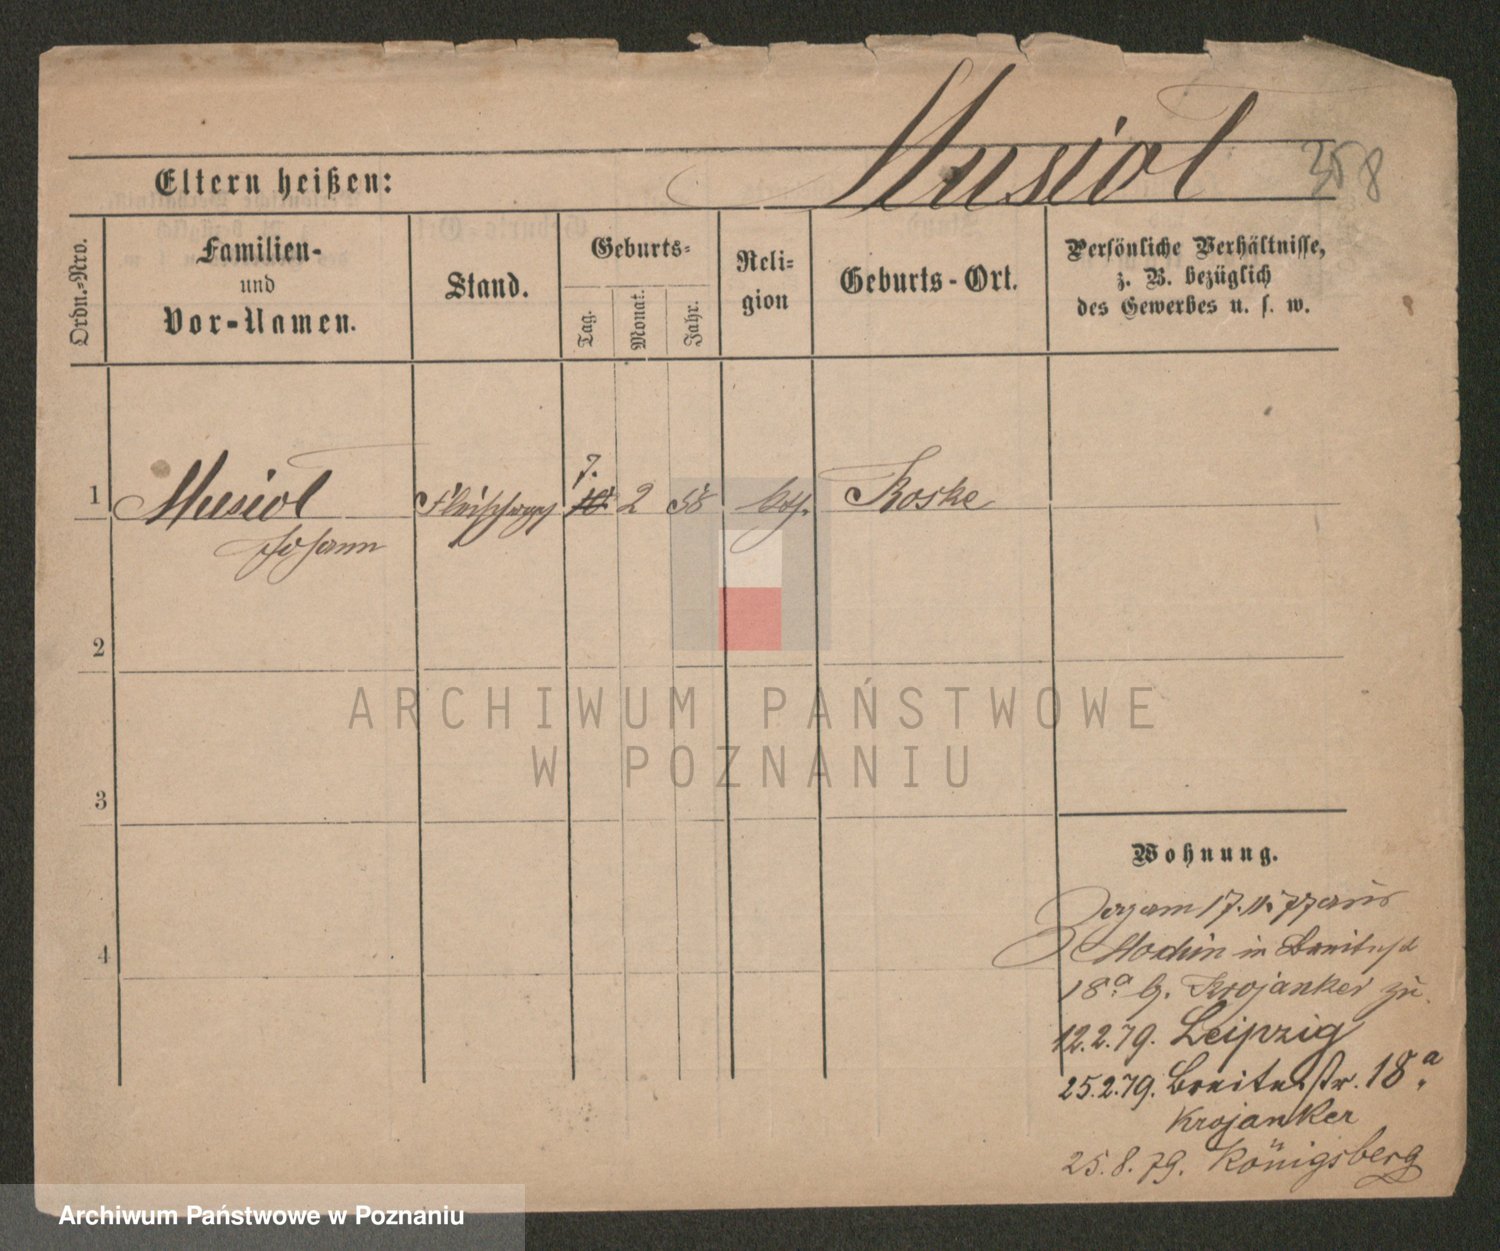 Musiol
358
Eltern heißen:
Ordn.-Nro.
Familien-
und
Vor-Namen.
Stand.
Geburts-
Tag.
Monat.
Jahr.
Reli-
gion
Geburts-Ort.
Persönliche Verhältnisse,
z. B. bezüglich
des Gewerbes u. s. w.
7.
1 Musiol 10 2 58 Koske
Johann
2
3
4
ARCHIWUM PAŃSTWOWE
W POZNANIU
Wohnung.
Zog am 17.11.77 aus
in Breitestr
18a b. Krojanker zu.
12.2.79. Leipzig
25.2.79. Breitestr. 18a.
Krojanker
25.8.79. Königsberg
Archiwum Państwowe w Poznaniu